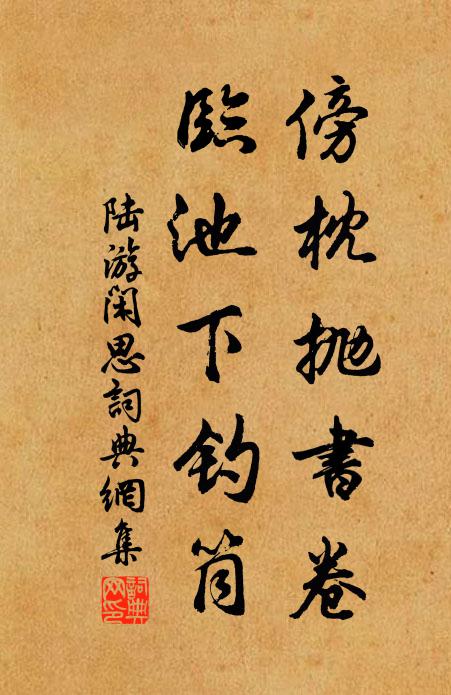 傍枕抛書卷
臨池下釣筒
陆游闲思詞典網集
詞典
网印